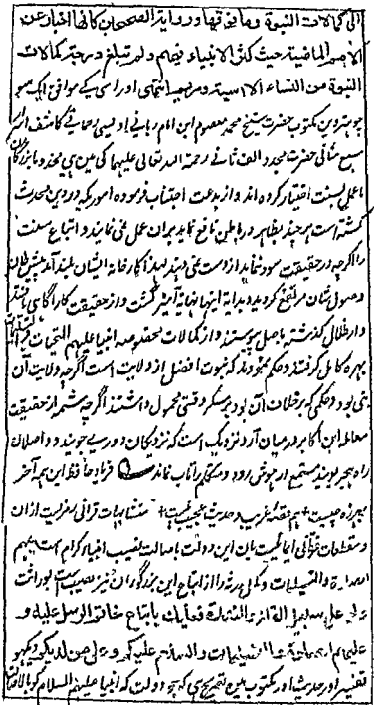 الی کمالات النبوة وما فوقها ورواية الصحيحين كانها اخبار عن
الامم الماضية حيث كثر الانبياء فيهم ولم تبلغ درجة كمالات
النبوة من النساء الا آسية ومريم انتهى اور اسی کے موافق ایک سو
چوہتروین مکتوب حضرت شیخ محمد معصوم ابن امام ربانی کاشف اسرار
سبع مثانی حضرت مجدد الف ثانی رحمة اللہ تعالی علیہما کی مین ہی
با عمل بسنت اختیار کردہ اند و از بدعت اجتناب فرمودہ امور کہ در دین محدث
گشتہ است ہر چند بظاہر در باطن نافع نماید بران عمل نمی نمایند و اتباع سنت
را اگرچہ در حقیقت سود نماید از دست نمی دہند لہذا کارخانہ ایشان بلند آمد
وصول شان مرتفع گردید بدایة اینہا نہایة آمیز گشت و از حقیقت کار آگاہی
و از ظلال گذشتہ باصل پیوستند و از کمالات مخصوصہ انبیا علیہم التحیات
بہرہ کامل گرفتند و حکم نمودند کہ نبوت افضل از ولایت است اگرچہ ولایت آن
نبی بود و حکمی کہ برخلاف آن بود بر سکر وقتی محمول داشتند اگرچہ شمہ از حقیقت
معاملہ این اکابر در میان آرد نزدیک است کہ نزدیکان دوری جویند و واصلان
راہ ہجر پویند مستمع از ہوش رود و متکلم را تاب نماند فریاد حافظ این ہمہ آخر
بہرزہ نیست + ہم قصہ غریب و حدیث عجیب ہست + متشابہات قرآنی رمزیست ازان
و مقطعات فرقانی ایمائیست بان این دولت باصالت نصیب انبیاء کرام است علیہم
الصلوة والتسلیمات و کمل ورثہ را از اتباع این بزرگواران نیز نصیب است بوراثت
علی سبیل القلة والندرة فعلیک باتباع خاتم الرسل علیہ و
علیہم الصلوات والتسلیمات والسلام علیکم وعلی من لدیکم دیکہو
تفسیر اور حدیث اور مکتوب مین تصریح ہی کہ جو دولت کہ انبیا علیہم السلام کو بالاصالة